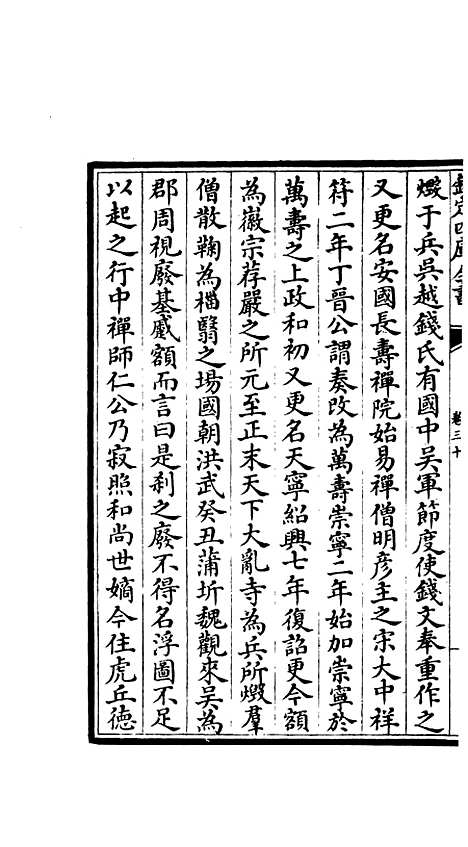 欽定四庫全書
卷三十
燬于兵吳越錢氏有國中吳軍節度使錢文奉重作之
又更名安國長壽禪院始易禪僧明彥主之宋大中祥
符二年丁晉公謂奏改為萬壽崇寧二年始加崇寧於
萬壽之上政和初又更名天寧紹興七年復詔更今額
為徽宗荐嚴之所元至正末天下大亂寺為兵所燬羣
僧散鞠為榴翳之場國朝洪武癸丑蒲圻魏觀來吳為
郡周視廢基慼額而言曰是刹之廢不得名浮圖不足
以起之行中禪師仁公乃寂照和尚世嫡今住虎丘徳